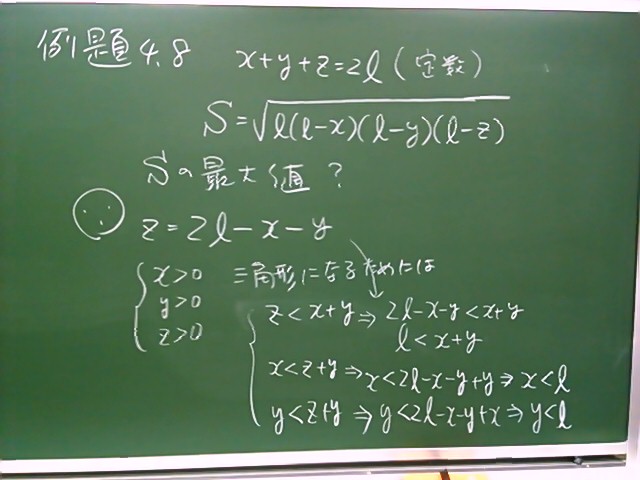 例題4.8 x+y+z=2l (定数)
S=√l(l-x)(l-y)(l-z)
Sの最大値?
z=2l-x-y
x>0 三角形になるためには
y>0
z>0
z<x+y⇒2l-x-y<x+y
l<x+y
x<z+y⇒x<2l-x-y+y⇒x<l
y<z+y⇒y<2l-x-y+x⇒y<l